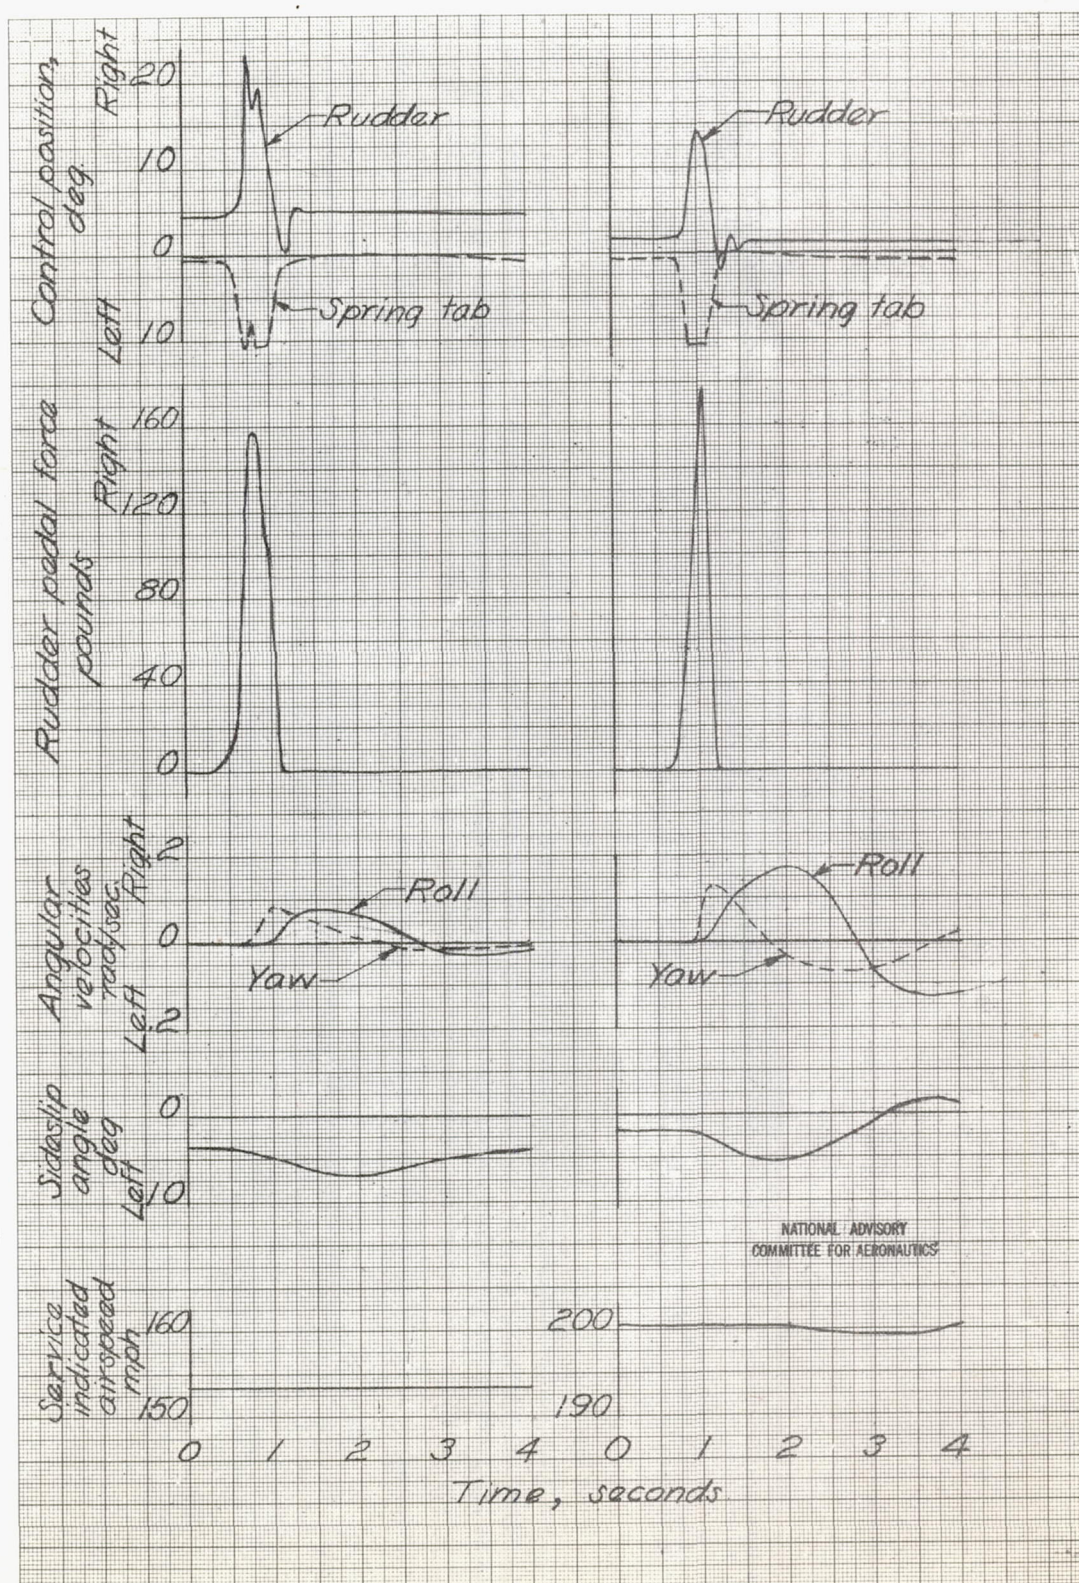 Control position,
deg.
Right
Left
20
10
0
10
Rudder
Spring tab
Rudder
Spring tab
Rudder pedal force
pounds
Right
160
120
80
40
0
Angular
velocities
rad/sec.
Right
Left
.2
0
.2
Roll
Yaw
Roll
Yaw
Sideslip
angle
deg
Left
0
10
NATIONAL ADVISORY
COMMITTEE FOR AERONAUTICS
Service
indicated
airspeed
mph
160
150
200
190
0 1 2 3 4 0 1 2 3 4
Time, seconds